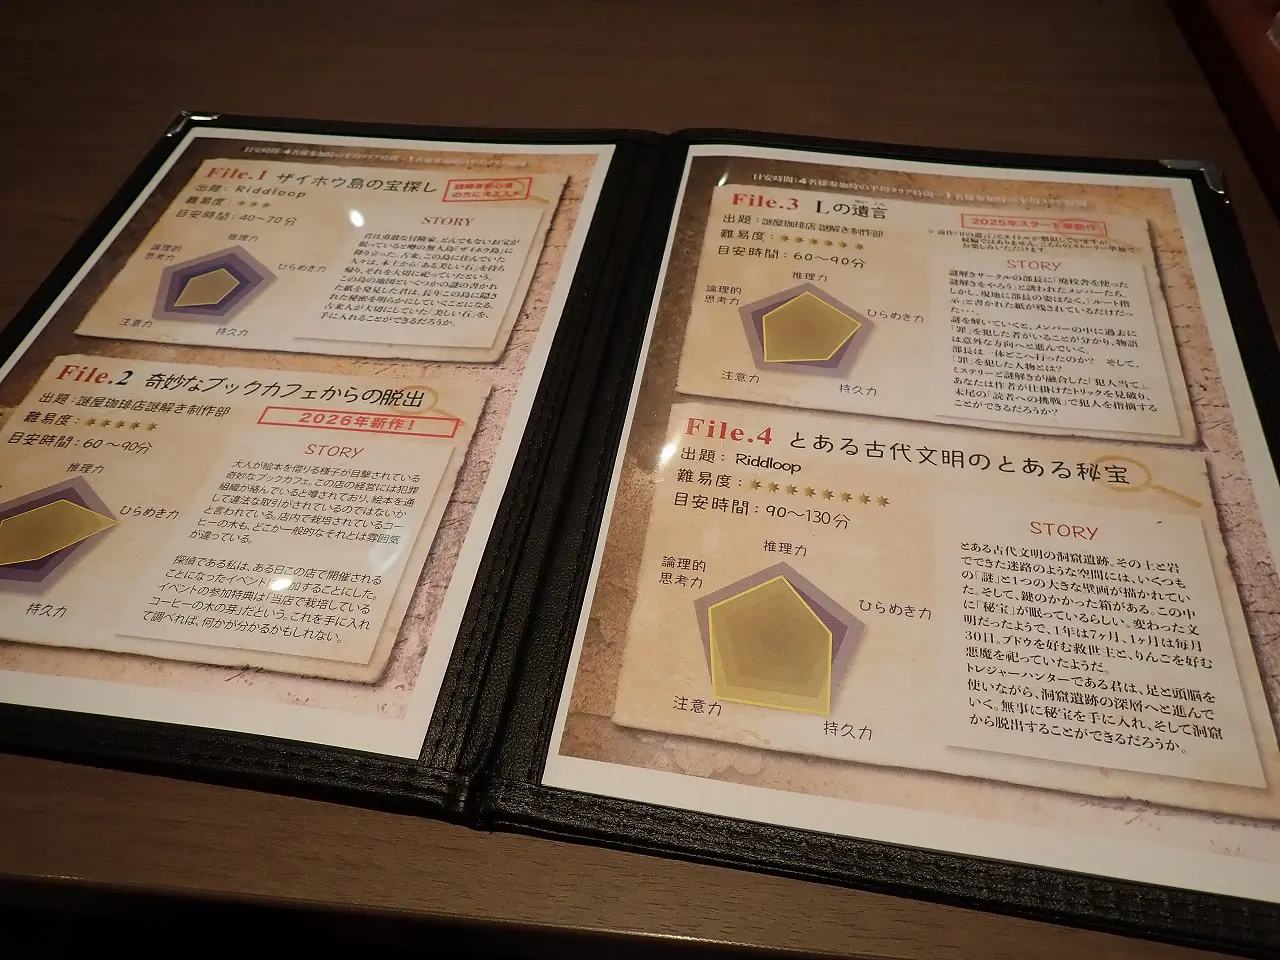 目安時間：4名様参加時の平均クリア時間～1名様参加時の平均クリア時間
File.1 ザイホウ島の宝探し
謎解き初心者
の方にオススメ
出題：Riddloop
難易度：★★★
目安時間：40～70分
推理力
論理的
思考力
ひらめき力
注意力
持久力
STORY
君は勇敢な冒険家。どんでもないお宝が
眠っていると噂の無人島「ザイホウ島」に
降り立った。古来、この島に住んでいた
人々は、本土から「ある美しい石」を持ち
帰り、それを大切に祀っていたという。
この島の地図といくつかの謎の書かれ
た紙を発見した君は、長年この島に隠さ
れた秘密を明らかにしていくことになる。
古来人が大切にしていた「美しい石」を、
手に入れることができるだろうか。
File.2 奇妙なブックカフェからの脱出
2026年新作！
出題：謎屋珈琲店謎解き制作部
難易度：★★★★★
目安時間：60～90分
推理力
ひらめき力
持久力
STORY
大人が絵本を借りる様子が目撃されている
奇妙なブックカフェ。この店の経営には犯罪
組織が絡んでいると噂されており、絵本を通
して違法な取引がされているのではないか
と言われている。店内で栽培されているコー
ヒーの木も、どこか一般的なそれとは雰囲気
が違っている。
探偵である私は、ある日この店で開催される
ことになったイベントに参加することにした。
イベントの参加特典は「当店で栽培している
コーヒーの木の芽」だという。これを手に入れ
て調べれば、何かが分かるかもしれない。
目安時間：4名様参加時の平均クリア時間～1名様参加時の平均クリア時間
File.3 Lの遺言
ゆい ごん
2025年スタート最新作
出題：謎屋珈琲店 謎解き制作部
※前作「Rの遺言」とタイトルが類似していますが
続編ではありません。こちらのストーリー単独で
お楽しみいただけます。
難易度：★★★★★★
目安時間：60～90分
推理力
論理的
思考力
ひらめき力
注意力
持久力
STORY
謎解きサークルの部長に「廃校舎を使った
謎解きをやろう」と誘われたメンバーたち。
しかし、現地に部長の姿はなく、「ルート指
示」と書かれた紙が残されているだけだっ
た・・・。
謎を解いていくと、メンバーの中に過去に
「罪」を犯した者がいることが分かり、物語
は意外な方向へと進んでいく。
部長は一体どこへ行ったのか？ そして、
「罪」を犯した人物とは？
ミステリーと謎解きが融合した「犯人当て」。
あなたは作者が仕掛けたトリックを見破り、
末尾の「読者への挑戦」で犯人を指摘する
ことができるだろうか？
File.4 とある古代文明のとある秘宝
出題：Riddloop
難易度：★★★★★★★★
目安時間：90～130分
推理力
論理的
思考力
ひらめき力
注意力
持久力
STORY
とある古代文明の洞窟遺跡。その土と岩
でできた迷路のような空間には、いくつも
の「謎」と1つの大きな壁画が描かれてい
た。そして、鍵のかかった箱がある。この中
に「秘宝」が眠っているらしい。変わった文
明だったようで、1年は7ヶ月、1ヶ月は毎月
30日。ブドウを好む救世主と、りんごを好む
悪魔を祀っていたようだ。
トレジャーハンターである君は、足と頭脳を
使いながら、洞窟遺跡の深層へと進んで
いく。無事に秘宝を手に入れ、そして洞窟
から脱出することができるだろうか。